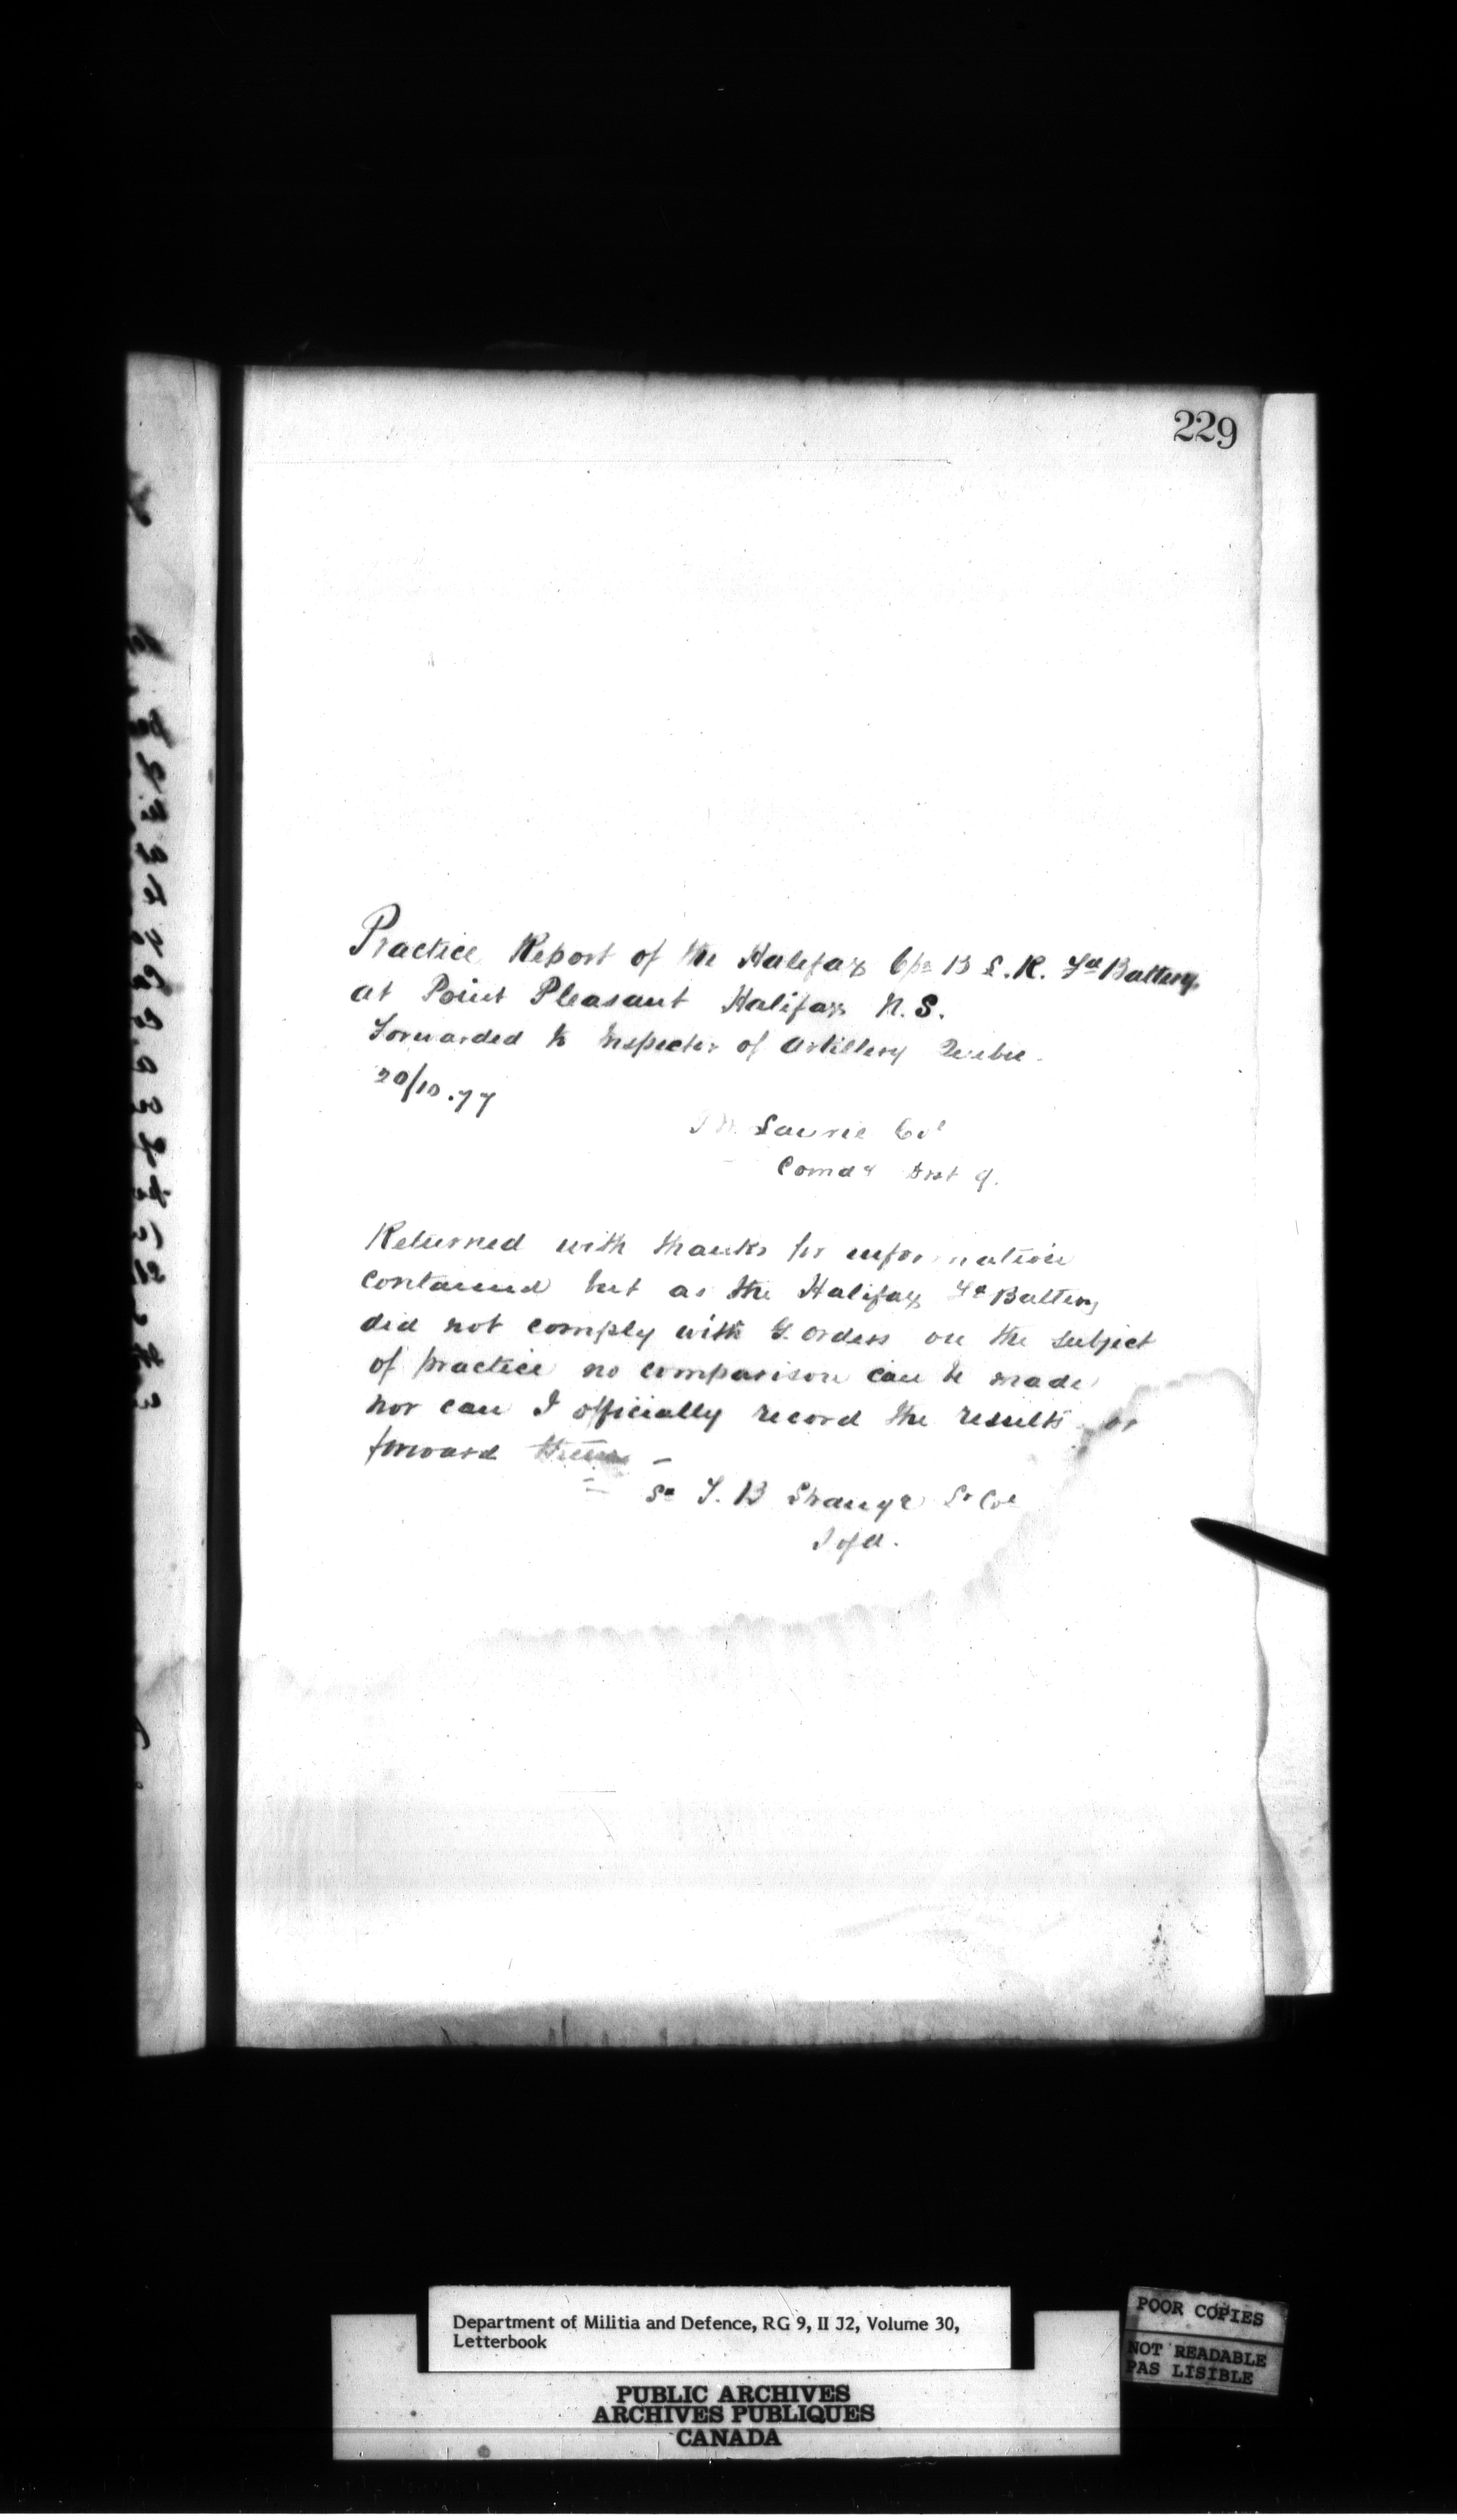 229
Practice Report of the Halifax 6 pr B. L. R. Fd Battery
at Point Pleasant Halifax N.S.
Forwarded to Inspector of Artillery Quebec.
20/10.77
Laurie Col
Comdg Dist 9.
Returned with thanks for information
contained but as the Halifax Fd Battery
did not comply with G. orders on the subject
of practice no comparison can be made
nor can I officially record the results or
forward them —
Sd T. B Strange Lt Col
I of A.
Department of Militia and Defence, RG 9, II J2, Volume 30,
Letterbook
PUBLIC ARCHIVES
ARCHIVES PUBLIQUES
CANADA
POOR COPIES
NOT READABLE
PAS LISIBLE